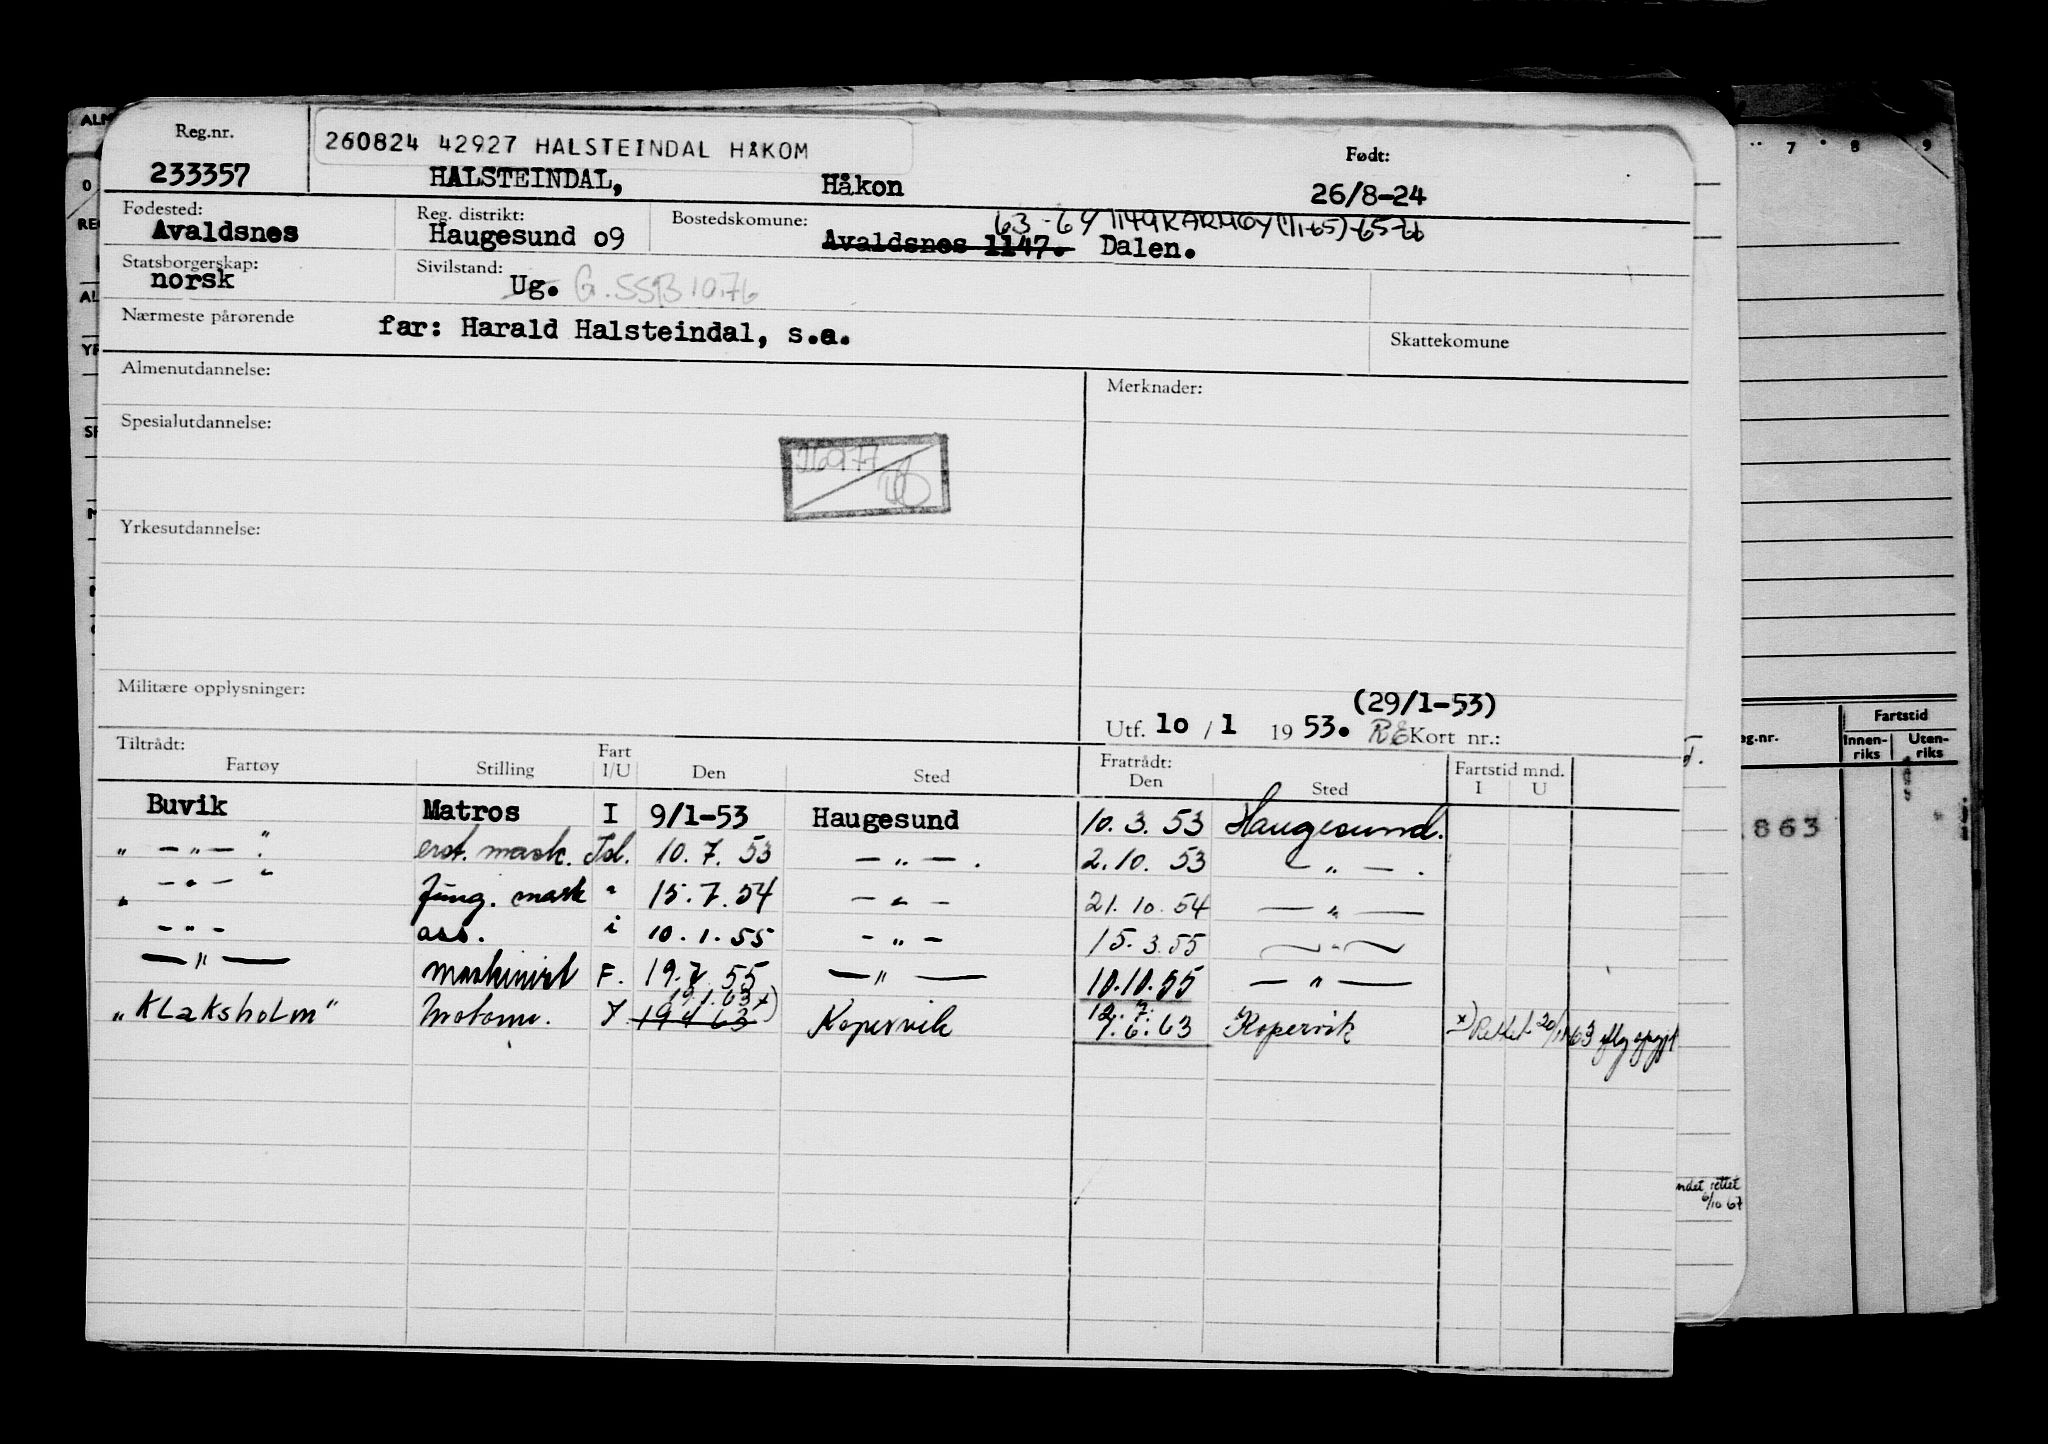 Reg.nr.
260824 42927 HALSTEINDAL HÅKOM
Født:
233357 HALSTEINDAL, Håkon 26/8-24
Fødested: Reg. distrikt: Bostedskomune: 63-64 1149 KARMØY (1/1-65)-65-66
Avaldsnes Haugesund o9 Avaldsnes 1147. Dalen.
Statsborgerskap: Sivilstand:
norsk Ug. G. SSB 10.76
Nærmeste pårørende far: Harald Halsteindal, s.a. Skattekomune
Almenutdannelse: Merknader:
Spesialutdannelse:
Yrkesutdannelse:
Militære opplysninger:
(29/1-53)
Utf. 1o / 1 19 53. Kort nr.:
Tiltrådt: Fratrådt:
Fartøy Stilling Fart I/U Den Sted Den Sted Fartstid mnd. I U
Buvik Matros I 9/1-53 Haugesund 10.3.53 Haugesund.
" — " — " . erst. mask. Isl. 10.7.53 — " — . 2.10.53 — " — .
" — " — " Jung. mask " 15.7.54 — " — 21.10.54 — " —
— " — ass. i 10.1.55 — " — 15.3.55 — " —
— " — maskinist F. 19.7.55 — " — 10.10.55 — " —
19.1.63 x) 12.7.
"Klaksholm" Motorm. 19 63 Kopervik 7.6.63 Kopervik x) Rettet 20/11 63
7 8 9
Fartstid
Innen-riks Uten-riks
863
rettet
6/10 67